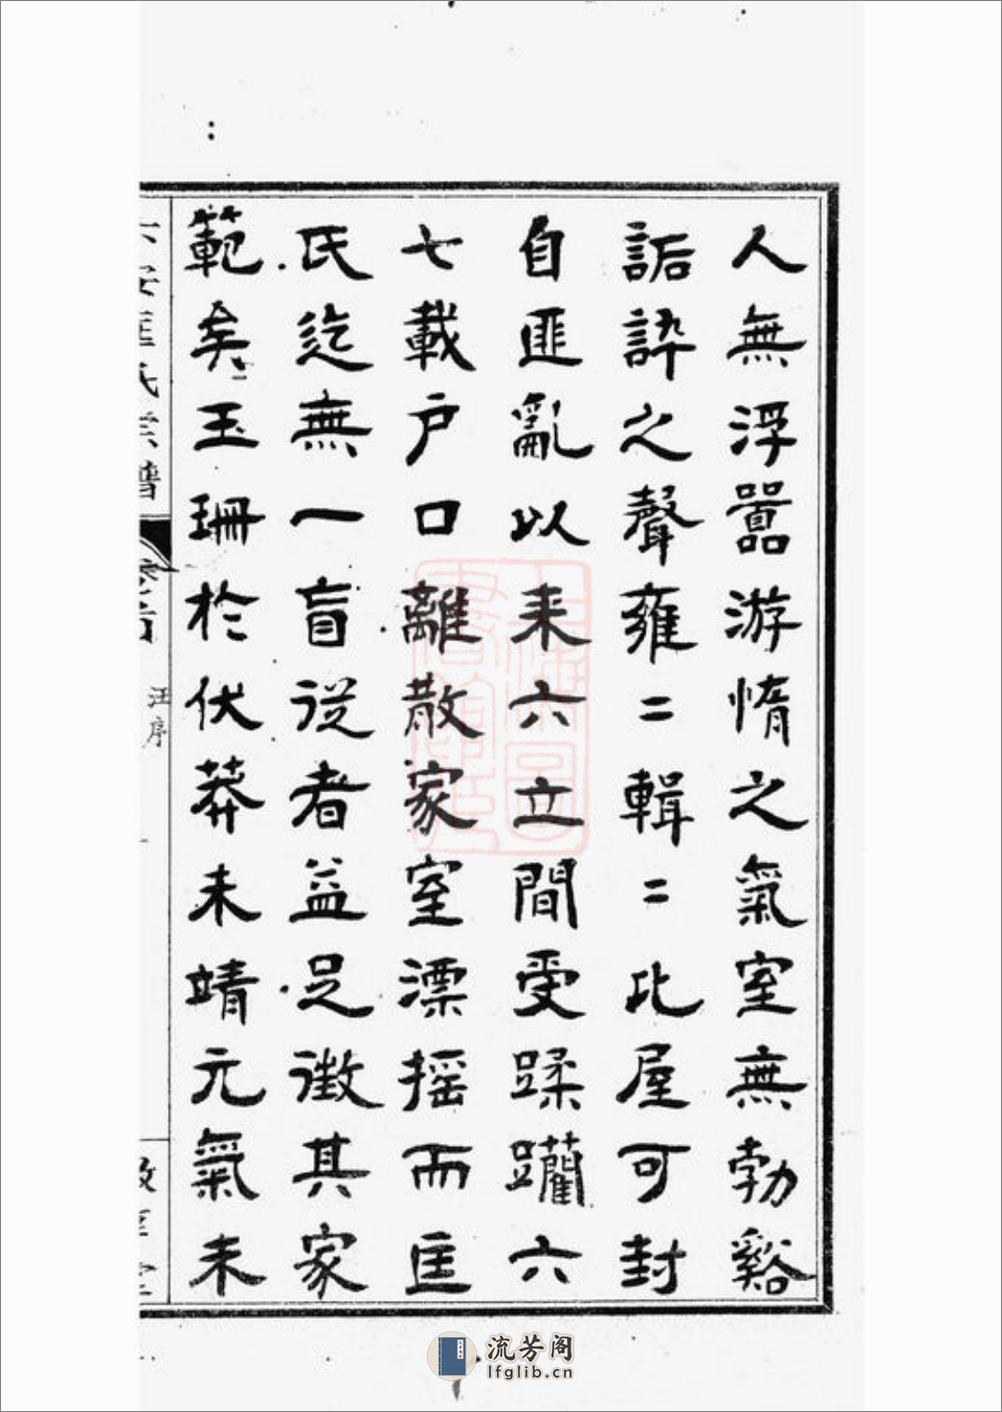 人無浮囂游惰之氣室無勃谿
詬誶之聲雍二輯二比屋可封
自匪亂以来六立間受蹂躪六
七載户口離散家室漂摇而匡
氏迄無一盲從者益足徵其家
範矣玉珊於伏莽未靖元氣未
六安匡氏宗譜
卷首
汪序
流芳阁
lfglib.cn